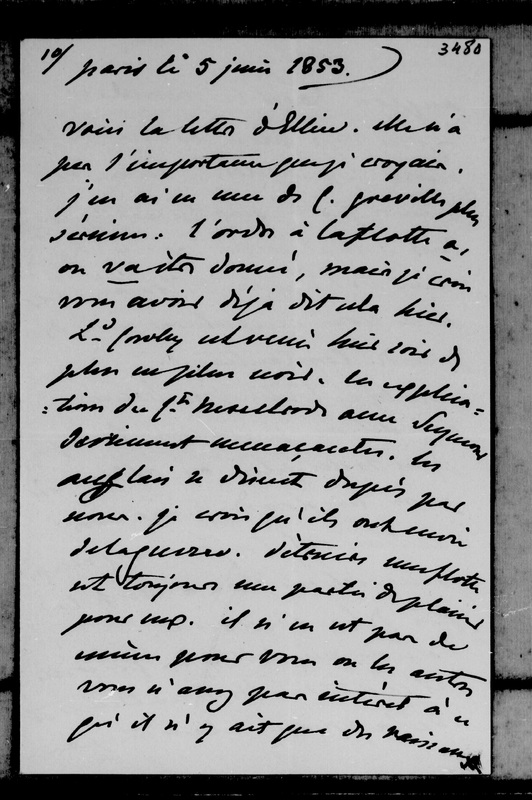 10/ 3480
paris le 5 juin 1853.
voici la lettre d'Ellice. Elle n'a
pas l'importance que je croyais.
j'en ai eu une de C. Greville plus
sérieuse. l'ordre à la flotte a,
ou va être donné, mais je crois
vous avoir déjà dit cela hier.
Ld Cowley est venu hier soir de
plus en plus noir. les explica=
=tions du Ct Nesselrode avec Seymour
deviennent menaçantes. les
anglais se disent dupés par
nous. je crois qu'ils ont envie
de la guerre. détruire une flotte
est toujours une partie de plaisir
pour eux. il n'en est pas de
même pour vous ou les autres
vous n'avez pas intérêt à ce
qu'il n'y ait que des